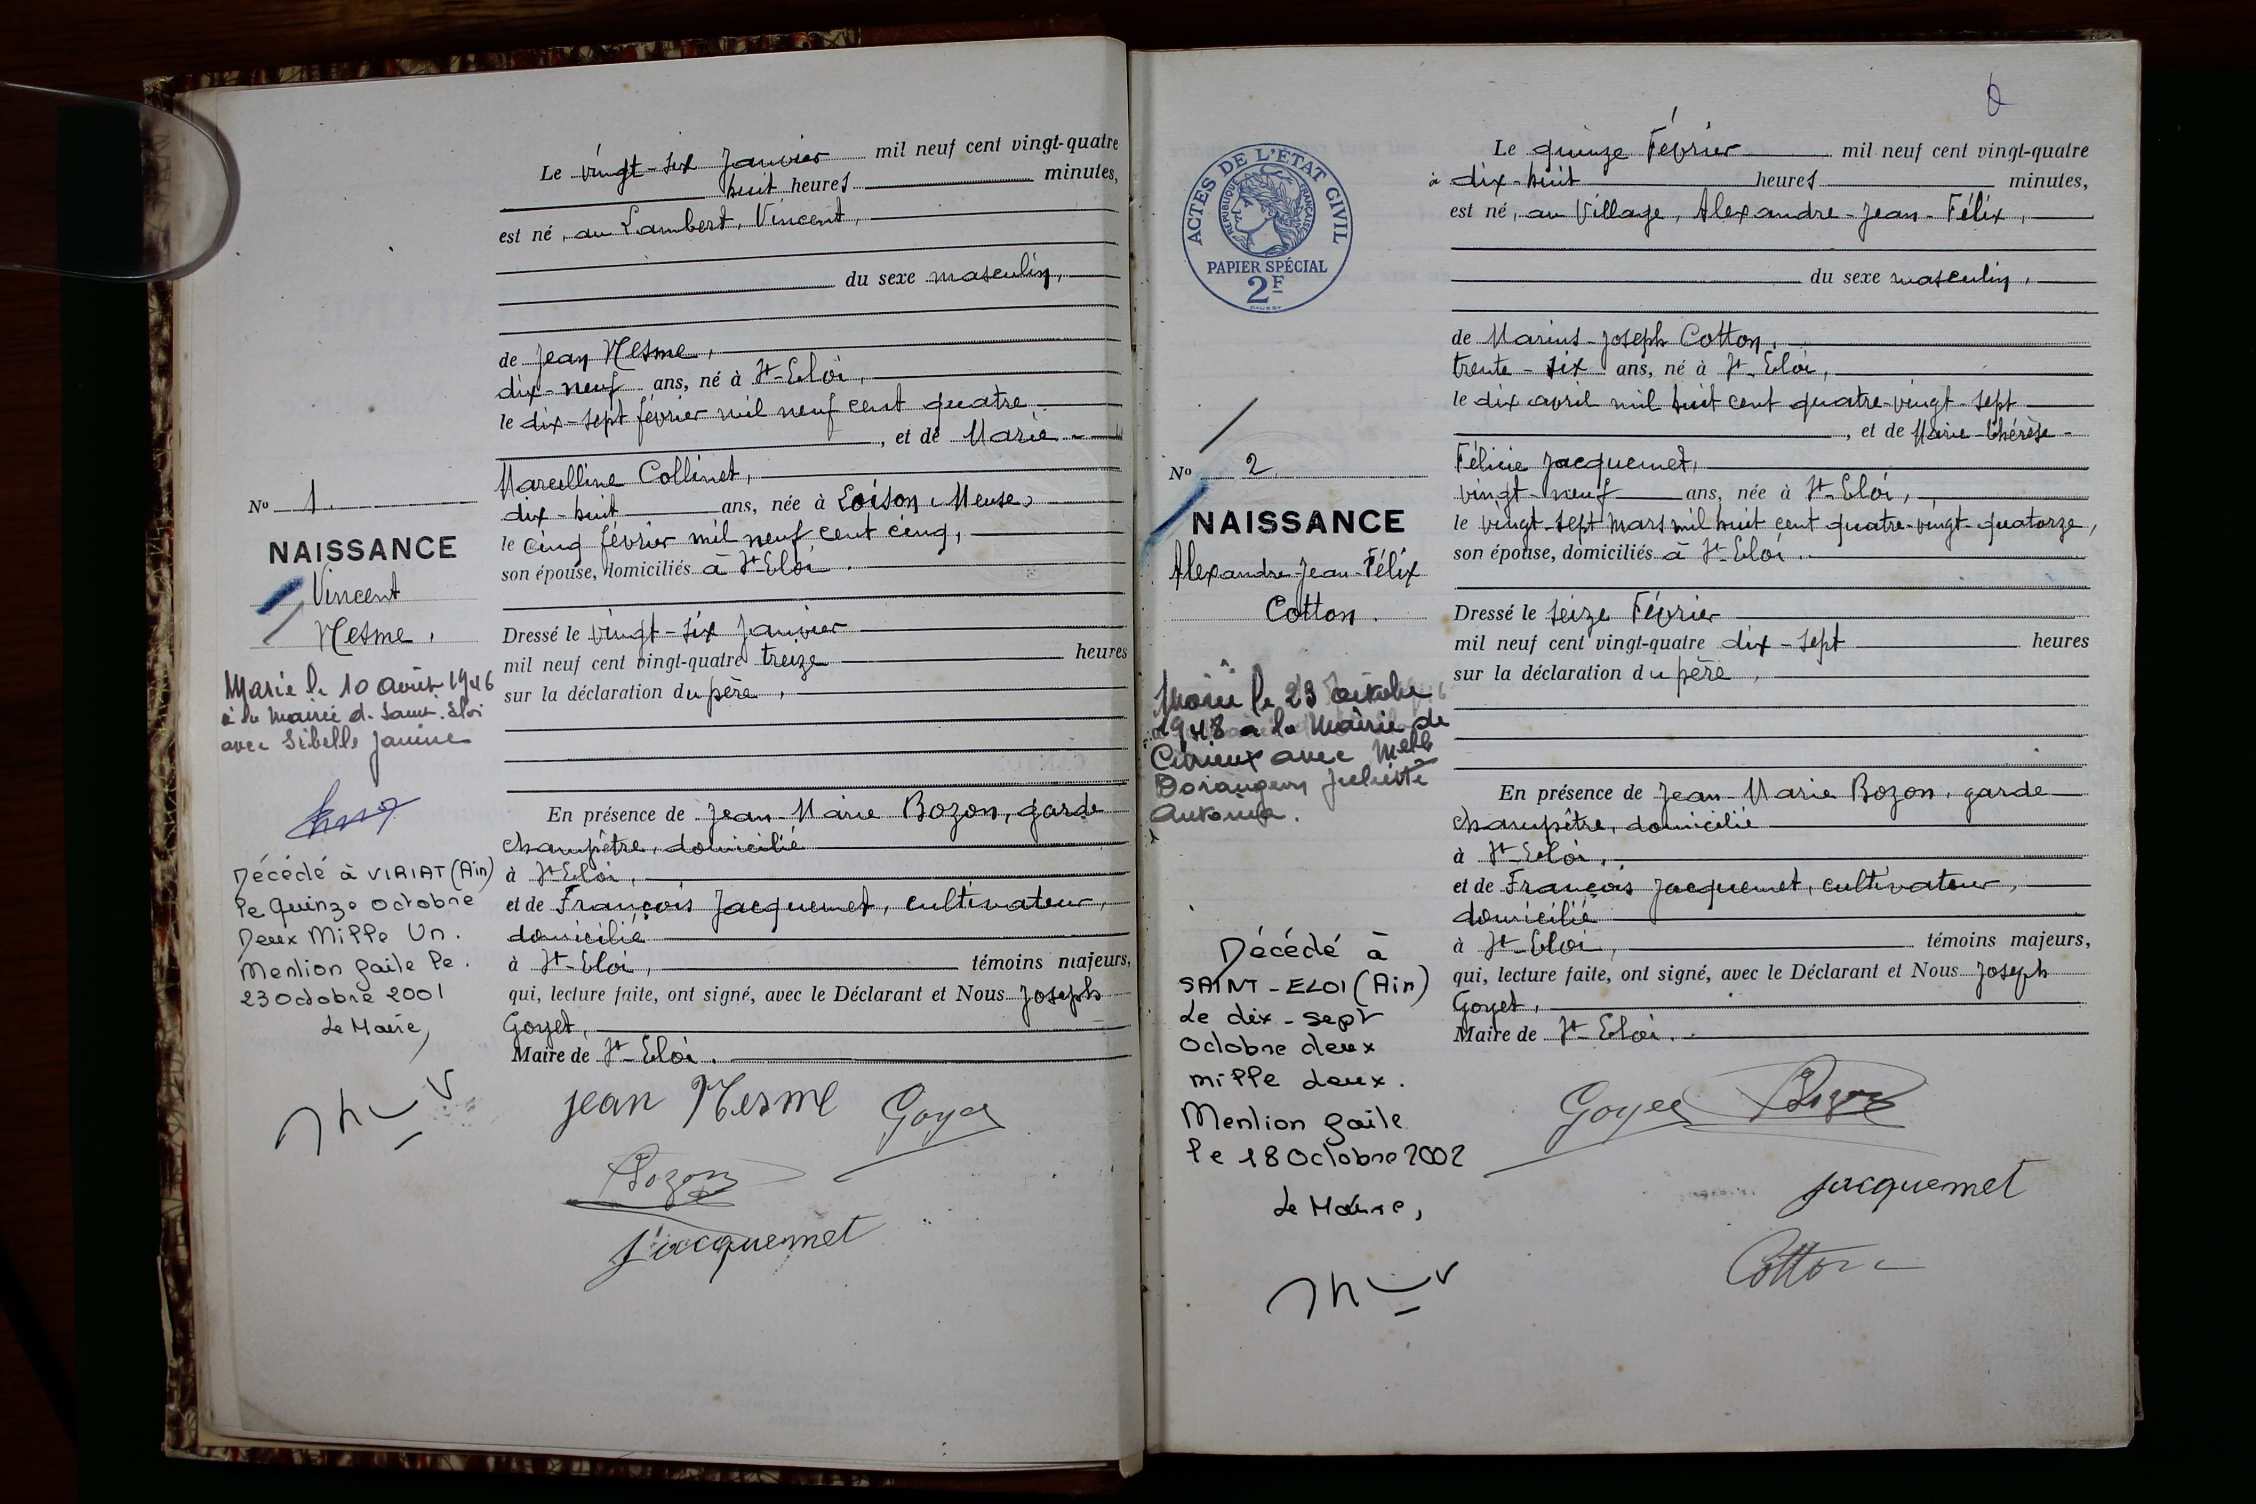 Le vingt-six Janvier mil neuf cent vingt-quatre
huit heures minutes,
est né, au Lambert, Vincent,
du sexe masculin,
de Jean Mesme,
dix-neuf ans, né à St-Eloi,
le dix-sept février mil neuf cent quatre
, et de Marie-
Marcelline Collinet,
dix-huit ans, née à Loison, Meuse,
le cinq février mil neuf cent cinq,
son épouse, domiciliés à St-Eloi.
Dressé le vingt-six Janvier
mil neuf cent vingt-quatre treize heures
sur la déclaration du père,
En présence de Jean-Marie Bozon, garde
champêtre, domicilié
à St-Eloi,
et de François Jacquemet, cultivateur,
domicilié
à St-Eloi, témoins majeurs,
qui, lecture faite, ont signé, avec le Déclarant et Nous Joseph
Goyet,
Maire de St-Eloi.
Jean Mesme Goyet
Bozon
Jacquemet
No 1.
NAISSANCE
Vincent
Mesme,
Marié le 10 août 1946
à la Mairie de Saint-Eloi
avec Sibelle Janine
Décédé à VIRIAT (Ain)
le quinze octobre
Deux Mille Un.
Mention faite le.
23 Octobre 2001
Le Maire,
6
ACTES DE L'ÉTAT CIVIL
RÉPUBLIQUE FRANÇAISE
PAPIER SPÉCIAL
2F
No 2
NAISSANCE
Alexandre-Jean-Félix
Cotton.
Marié le 23 octobre
1948 a la Mairie de
Civrieux avec Melle
Juliette
Antonia.
Décédé à
SAINT-ELOI (Ain)
Le dix-sept
Octobre deux
mille deux.
Mention faite
le 18 Octobre 2002
Le Maire,
Le quinze Février mil neuf cent vingt-quatre
à dix-huit heures minutes,
est né, au Village, Alexandre-Jean-Félix,
du sexe masculin,
de Marius-Joseph Cotton,
trente-six ans, né à St-Eloi,
le dix avril mil huit cent quatre-vingt-sept
, et de Marie-Thérèse-
Félicie Jacquemet,
vingt-neuf ans, née à St-Eloi,
le vingt-sept mars mil huit cent quatre-vingt-quatorze,
son épouse, domiciliés à St-Eloi.
Dressé le seize Février
mil neuf cent vingt-quatre dix-sept heures
sur la déclaration du père,
En présence de Jean-Marie Bozon, garde
champêtre, domicilié
à St-Eloi,
et de François Jacquemet, cultivateur,
domicilié
à St-Eloi, témoins majeurs,
qui, lecture faite, ont signé, avec le Déclarant et Nous Joseph
Goyet,
Maire de St-Eloi.
Goyet Bozon
Jacquemet
Cotton